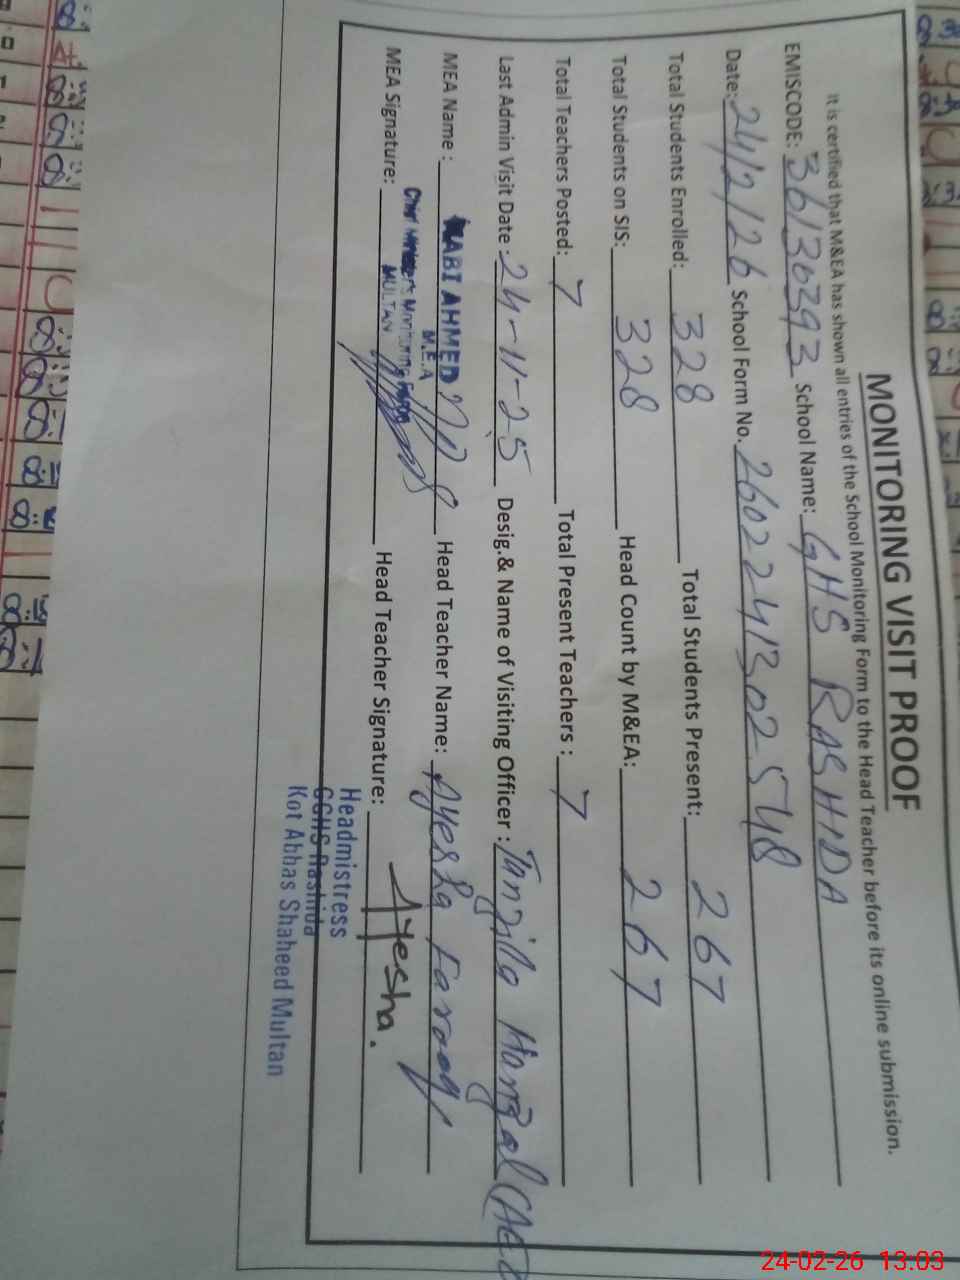 MONITORING VISIT PROOF
It is certified that M&EA has shown all entries of the School Monitoring Form to the Head Teacher before its online submission.
EMISCODE: 36130393 School Name: GHS RASHIDA
Date: 24/2/26 School Form No. 2602241302548
Total Students Enrolled: 328 Total Students Present: 267
Total Students on SIS: 328 Head Count by M&EA: 267
Total Teachers Posted: 7 Total Present Teachers : 7
Last Admin Visit Date : 24-11-25 Desig.& Name of Visiting Officer : Tanzila (AEO
MEA Name : NABI AHMED Head Teacher Name: Ayesha Farooq
M.E.A
Chief Minister's Monitoring Force
MULTAN
MEA Signature: Head Teacher Signature: Ayesha.
Headmistress
GGHS Rashida
Kot Abbas Shaheed Multan
24-02-26 13:03